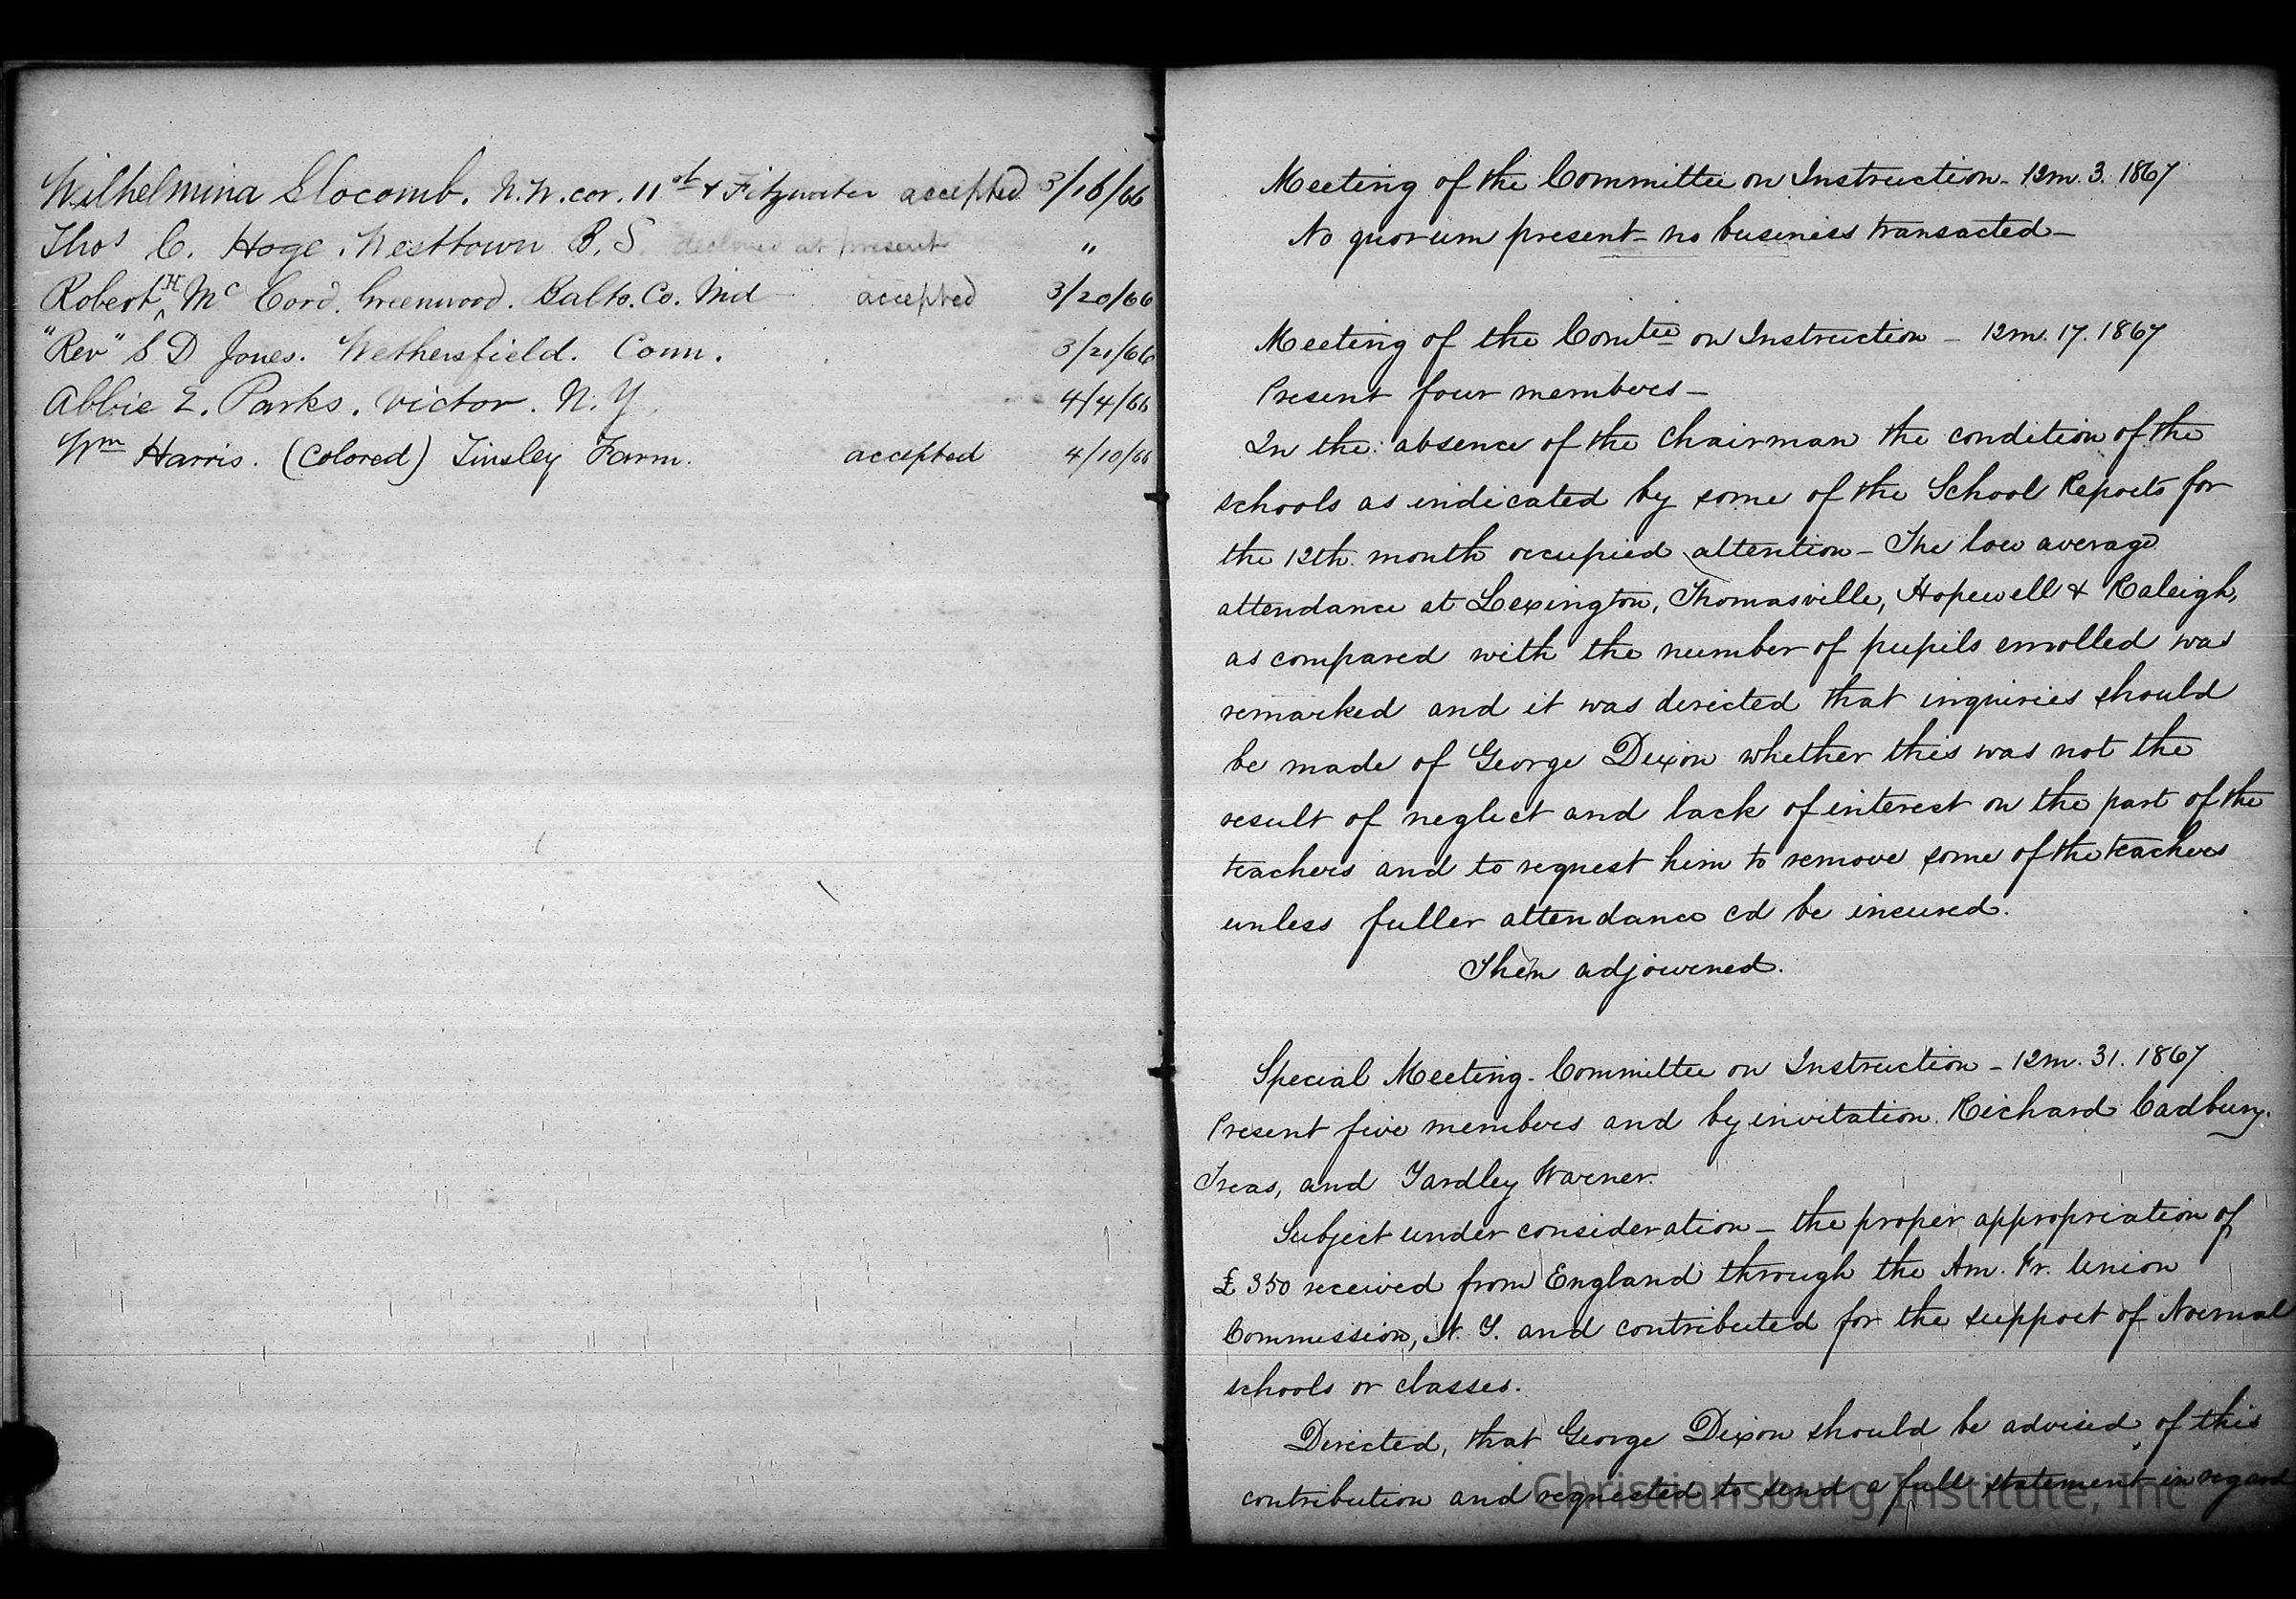 Wilhelmina Slocomb. N.W. cor. 11st & Fitzwater accepted 3/16/66
Thos C. Hoge. Westtown B.S. declined at present "
Robert H Mc Cord. Greenwood. Balto. Co. Md accepted 3/20/66
"Rev" S D Jones. Wethersfield. Conn. 3/21/66
Abbie E. Parks. Victor. N.Y. 4/4/66
Wm Harris. (Colored) Tinsley Farm. accepted 4/10/66
Meeting of the Committee on Instruction - 12m. 3. 1867
No quorum present - no business transacted -
Meeting of the Comtee on Instruction - 12m. 17. 1867
Present four members -
In the absence of the chairman the condition of the
schools as indicated by some of the School Reports for
the 12th month occupied attention - The low average
attendance at Lexington, Thomasville, Hopewell & Raleigh,
as compared with the number of pupils enrolled was
remarked and it was directed that inquiries should
be made of George Dixon whether this was not the
result of neglect and lack of interest on the part of the
teachers and to request him to remove some of the teachers
unless fuller attendance cd be incured.
Then adjourned.
Special Meeting - Committee on Instruction - 12m. 31. 1867
Present five members and by invitation Richard Cadbury.
Treas, and Yardley Warner.
Subject under consideration - the proper appropriation of
£350 received from England through the Am. Fr. Union
Commission, N.Y. and contributed for the support of Normal
schools or classes.
Directed, that George Dixon should be advised of this
contribution and requested to send a full statement in regard
Christiansburg Institute, Inc